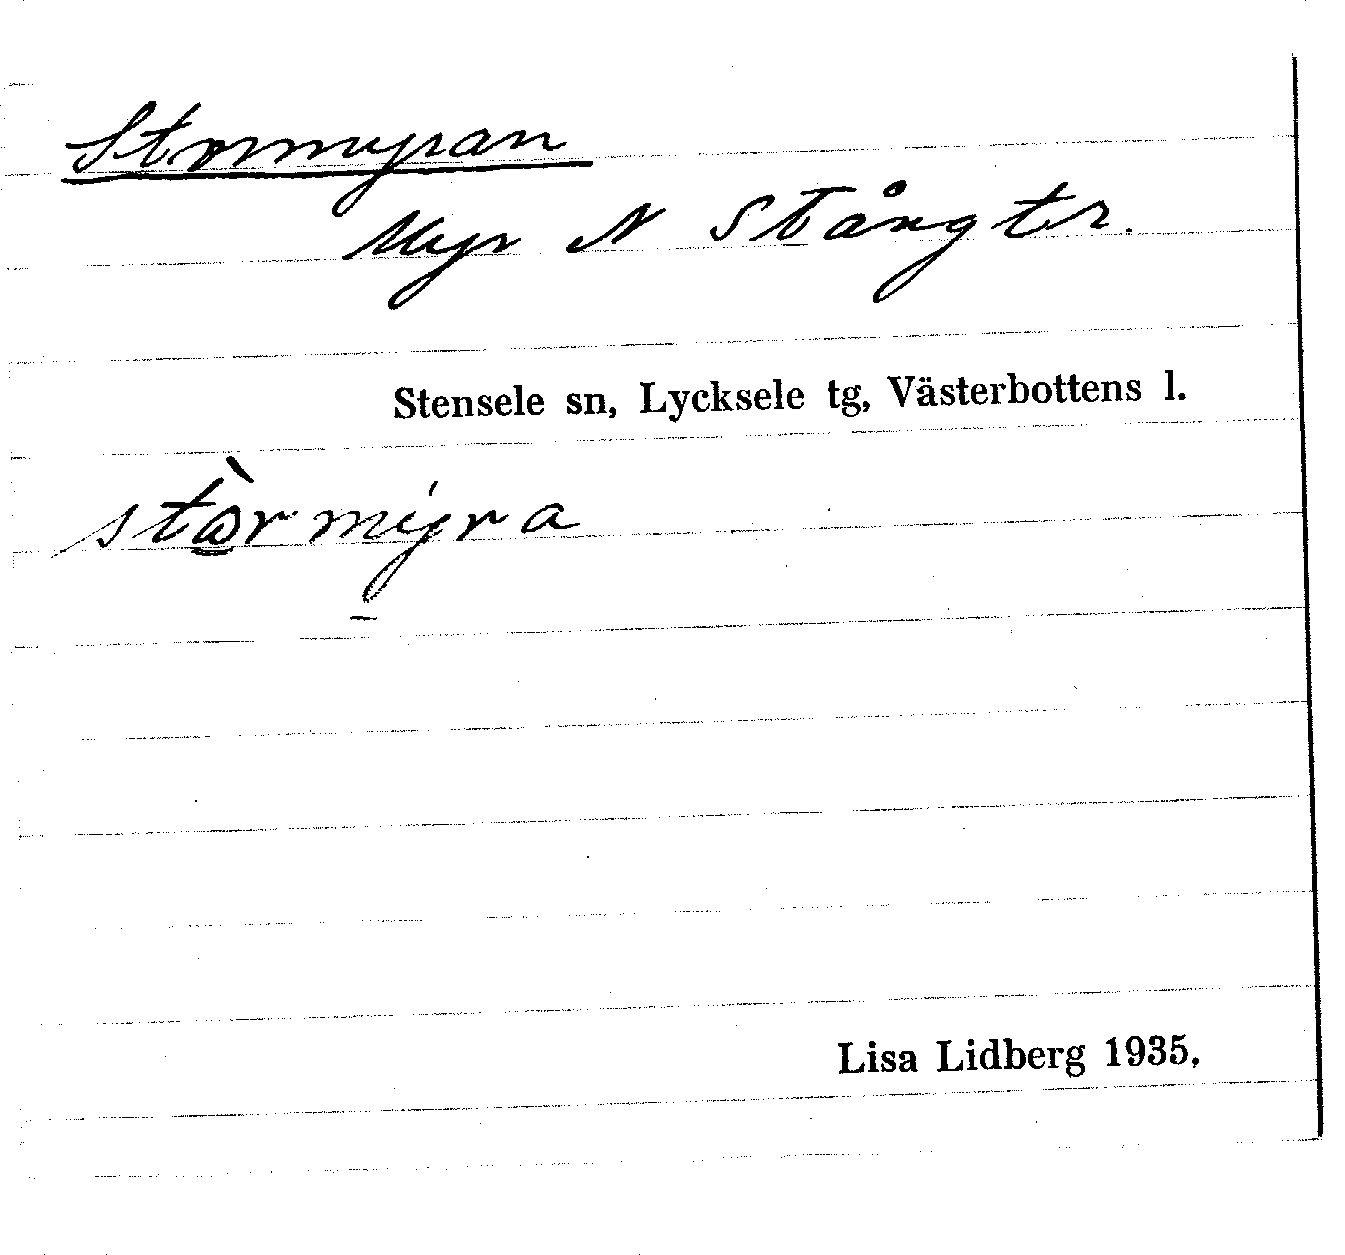 Stormyran
Myr N Stångtr.
Stensele sn, Lycksele tg, Västerbottens l.
stòrmýra
Lisa Lidberg 1935,